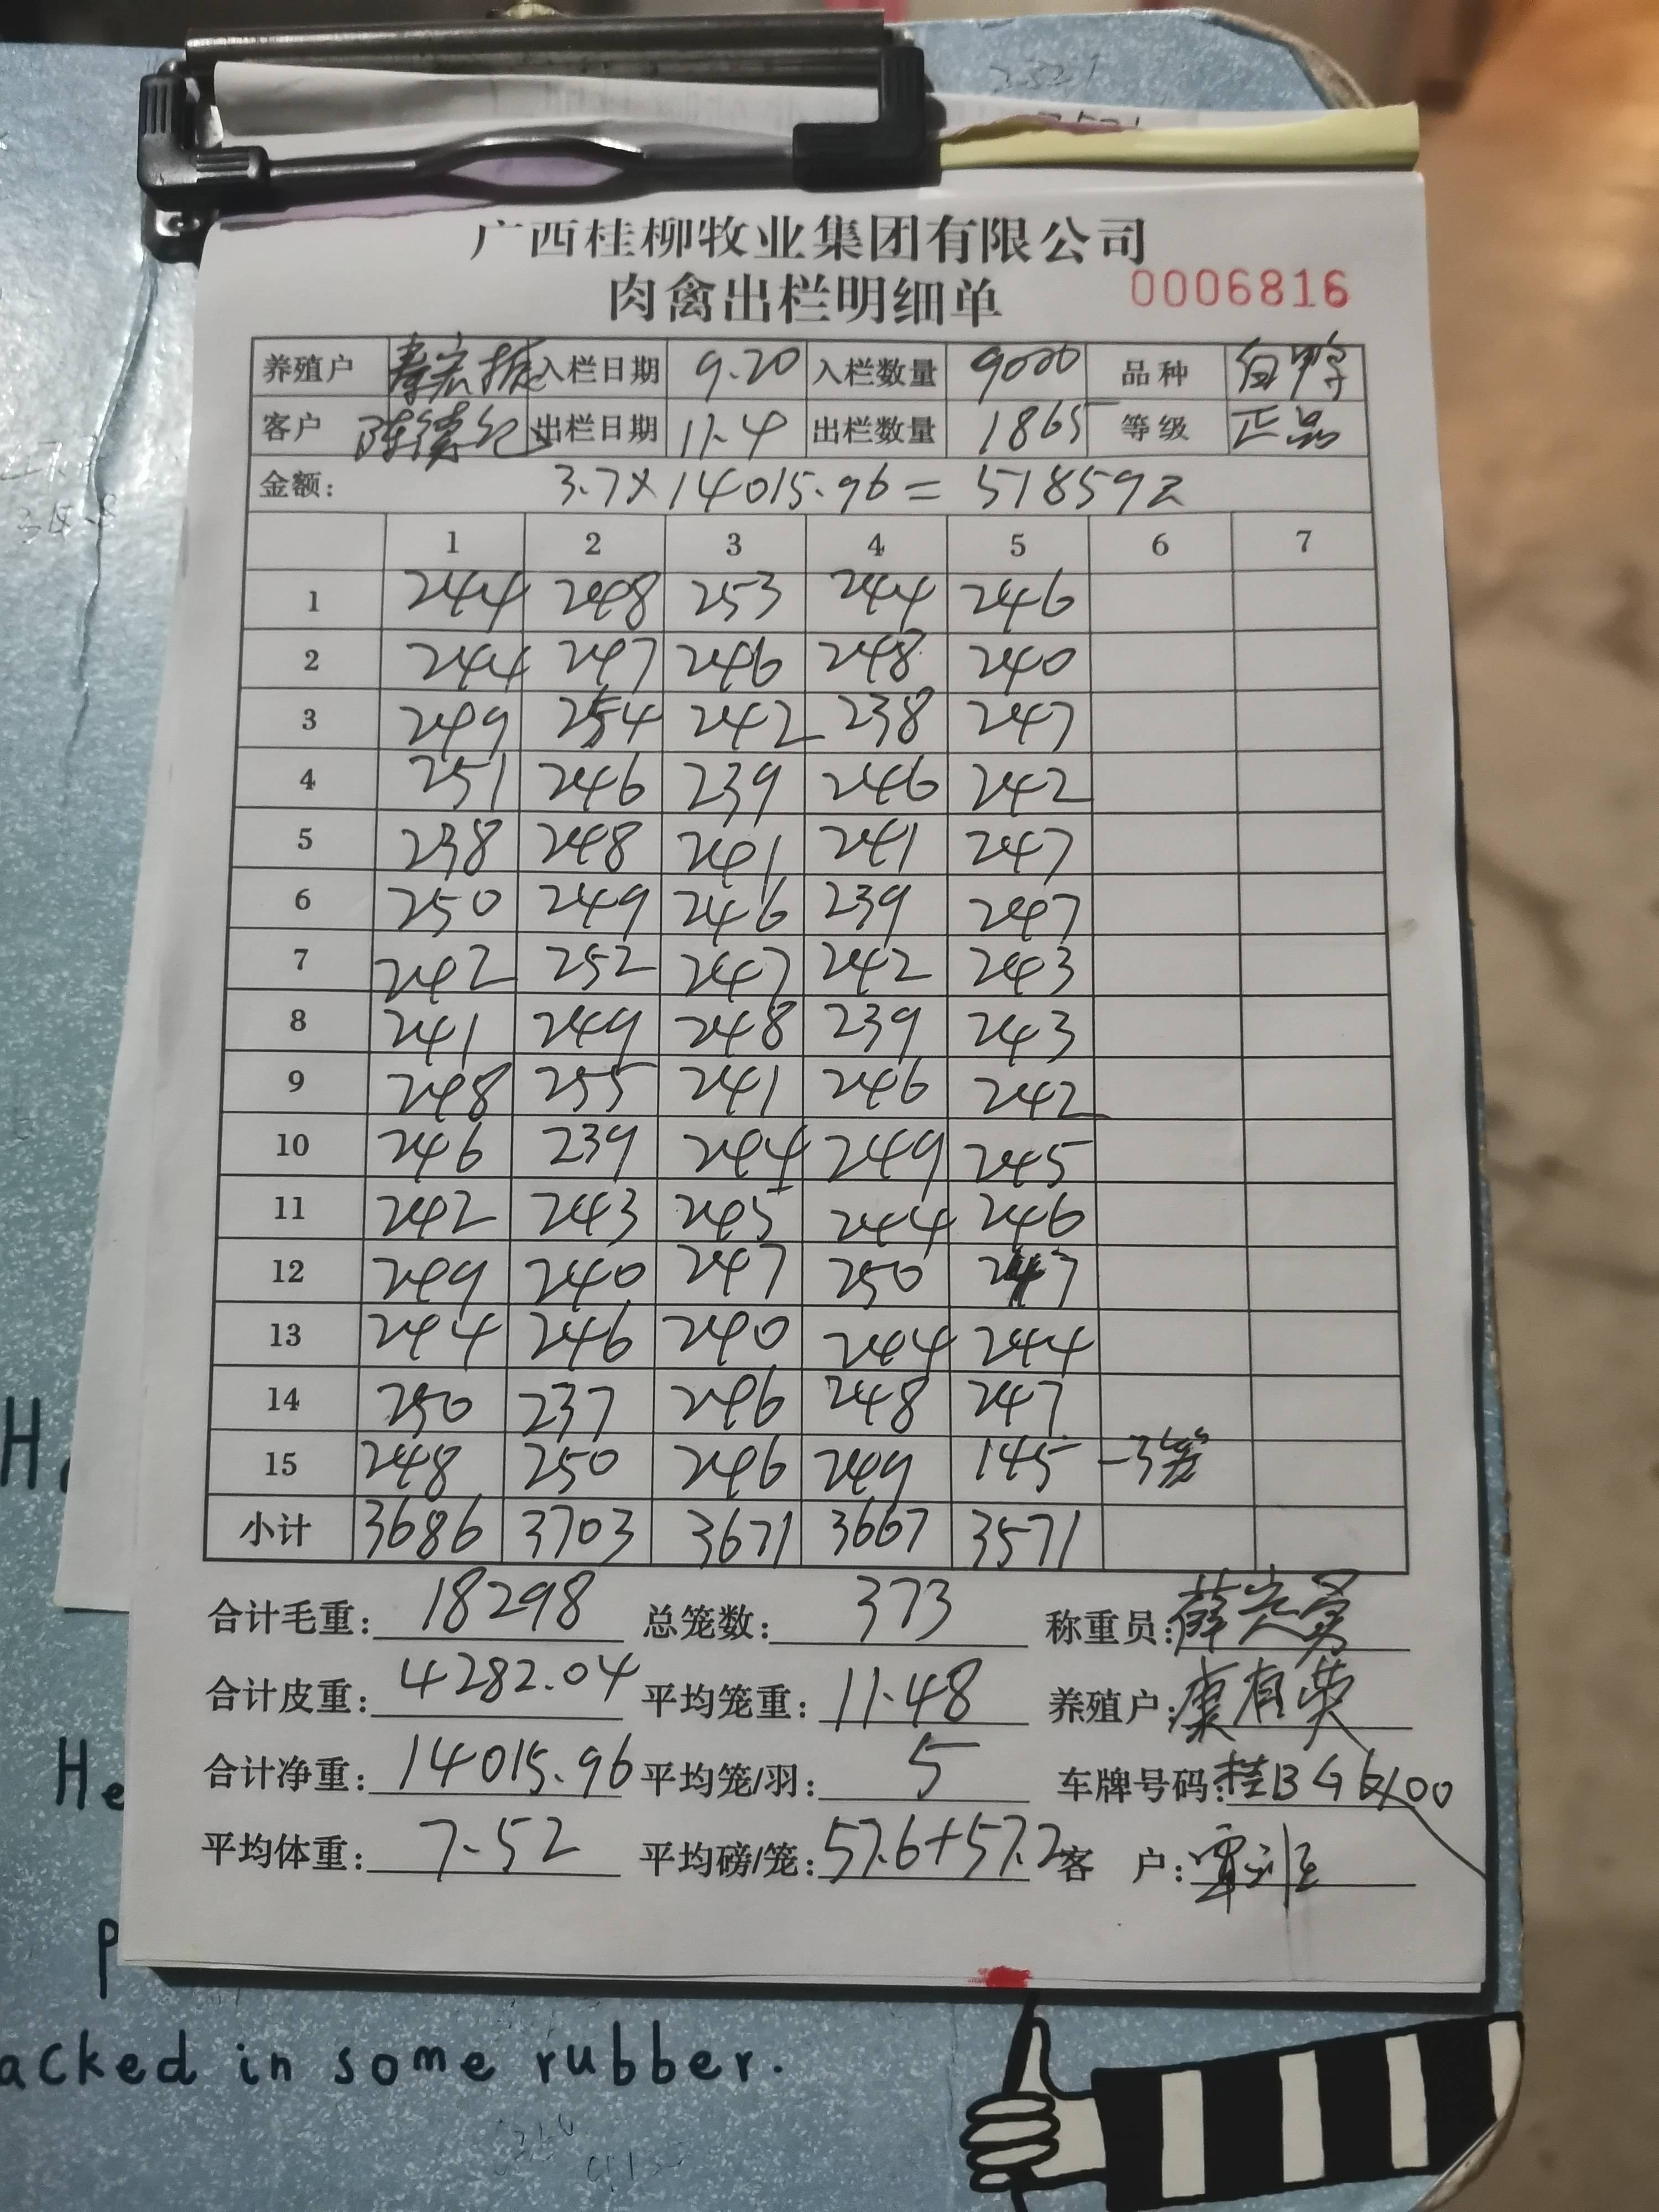 广西桂柳牧业集团有限公司
肉禽出栏明细单 0006816
养殖户 入栏日期 9.20 入栏数量 9000 品种 白鸭
客户 陈德纪 出栏日期 11.4 出栏数量 1865 等级 正品
金额: 3.7×14015.96=51859元
1 2 3 4 5 6 7
1 244 248 253 244 246
2 244 247 246 248 240
3 249 254 242 238 247
4 251 246 239 246 242
5 238 248 241 241 247
6 250 249 246 239 247
7 242 252 247 242 243
8 241 249 248 239 243
9 248 255 241 246 242
10 246 239 244 249 245
11 242 243 245 244 246
12 249 240 247 250 247
13 244 246 240 244 244
14 250 237 246 248 247
15 248 250 246 249 145 -3
小计 3686 3703 3671 3667 3571
合计毛重: 18298 总笼数: 373 称重员:
合计皮重: 4282.04 平均笼重: 11.48 养殖户:
合计净重: 14015.96 平均笼/羽: 5 车牌号码: 桂BG
平均体重: 7.52 平均磅/笼: 57.6+57.2 客 户:
acked in some rubber.